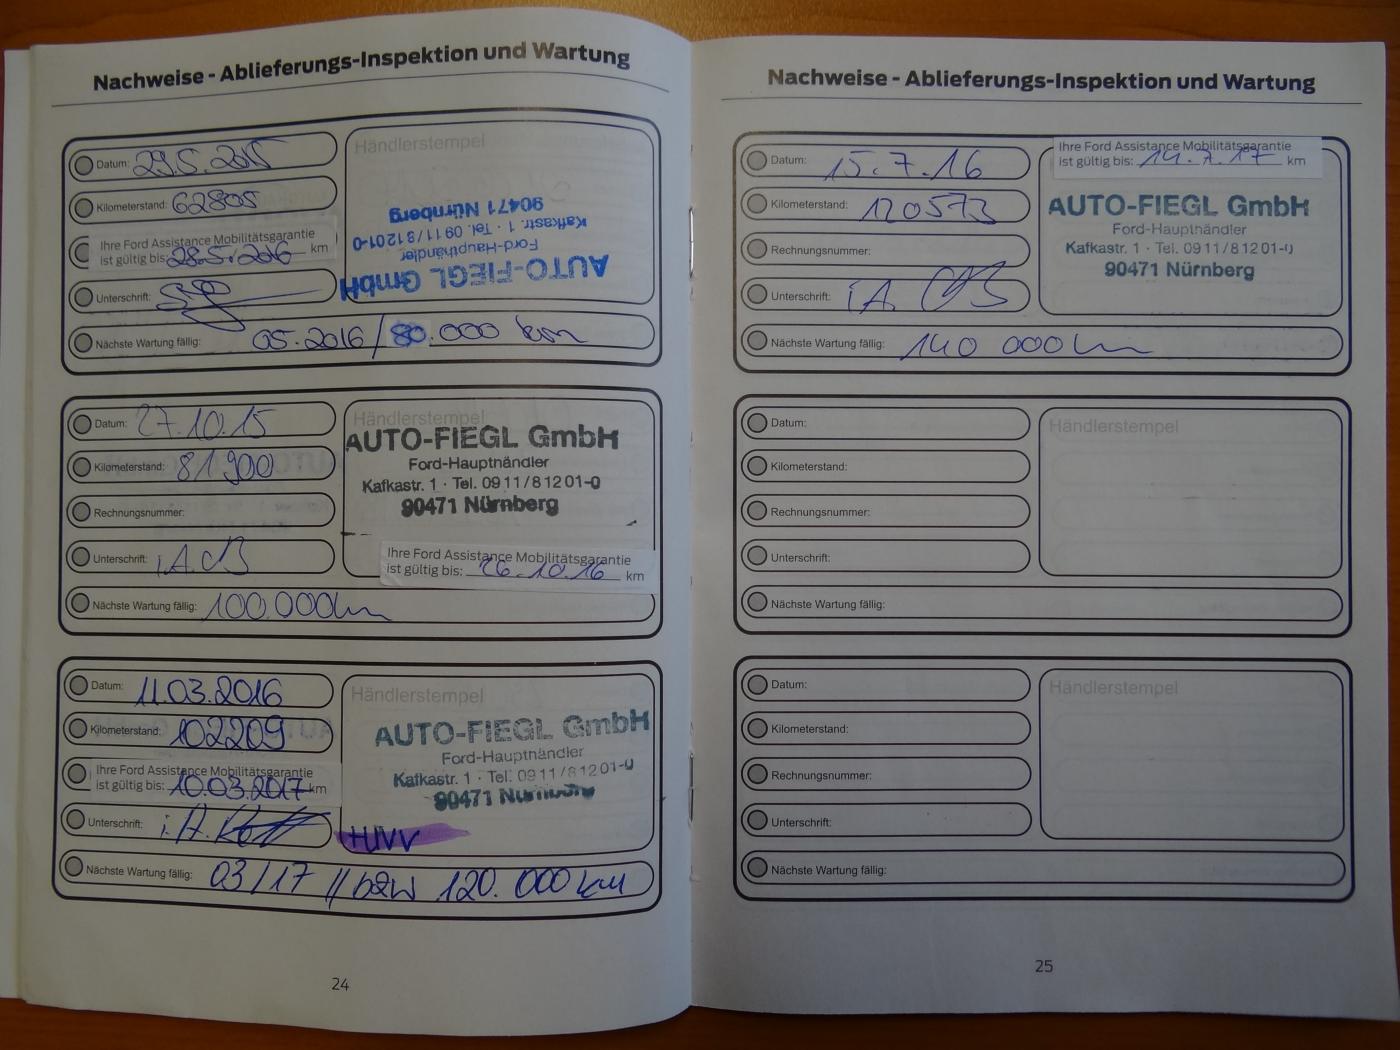 Nachweise - Ablieferungs-Inspektion und Wartung
Datum: 29.5.2015
Kilometerstand: 62805
Ihre Ford Assistance Mobilitätsgarantie
ist gültig bis: 28.5.2016 km
Unterschrift:
Nächste Wartung fällig: 05.2016 / 80.000 km
Händlerstempel
AUTO-FIEGL GmbH
Ford-Haupthändler
Kafkastr. 1 · Tel. 0911/81201-0
90471 Nürnberg
Datum: 27.10.15
Kilometerstand: 81900
Rechnungsnummer:
Unterschrift: i.A.
Nächste Wartung fällig: 100.000km
Händlerstempel
AUTO-FIEGL GmbH
Ford-Haupthändler
Kafkastr. 1 · Tel. 0911/81201-0
90471 Nürnberg
Ihre Ford Assistance Mobilitätsgarantie
ist gültig bis: 26.10.16 km
Datum: 11.03.2016
Kilometerstand: 102209
Ihre Ford Assistance Mobilitätsgarantie
ist gültig bis: 10.03.2017 km
Unterschrift: i.A.
Nächste Wartung fällig: 03/17 // bzw 120.000 km
Händlerstempel
AUTO-FIEGL GmbH
Ford-Haupthändler
Kafkastr. 1 · Tel. 0911/81201-0
90471 Nürnberg
24
Nachweise - Ablieferungs-Inspektion und Wartung
Datum: 15.7.16
Kilometerstand: 120573
Rechnungsnummer:
Unterschrift: i.A.
Nächste Wartung fällig: 140 000km
Ihre Ford Assistance Mobilitätsgarantie
ist gültig bis: 14.7.17 km
AUTO-FIEGL GmbH
Ford-Haupthändler
Kafkastr. 1 · Tel. 0911/81201-0
90471 Nürnberg
Datum:
Kilometerstand:
Rechnungsnummer:
Unterschrift:
Nächste Wartung fällig:
Händlerstempel
Datum:
Kilometerstand:
Rechnungsnummer:
Unterschrift:
Nächste Wartung fällig:
Händlerstempel
25